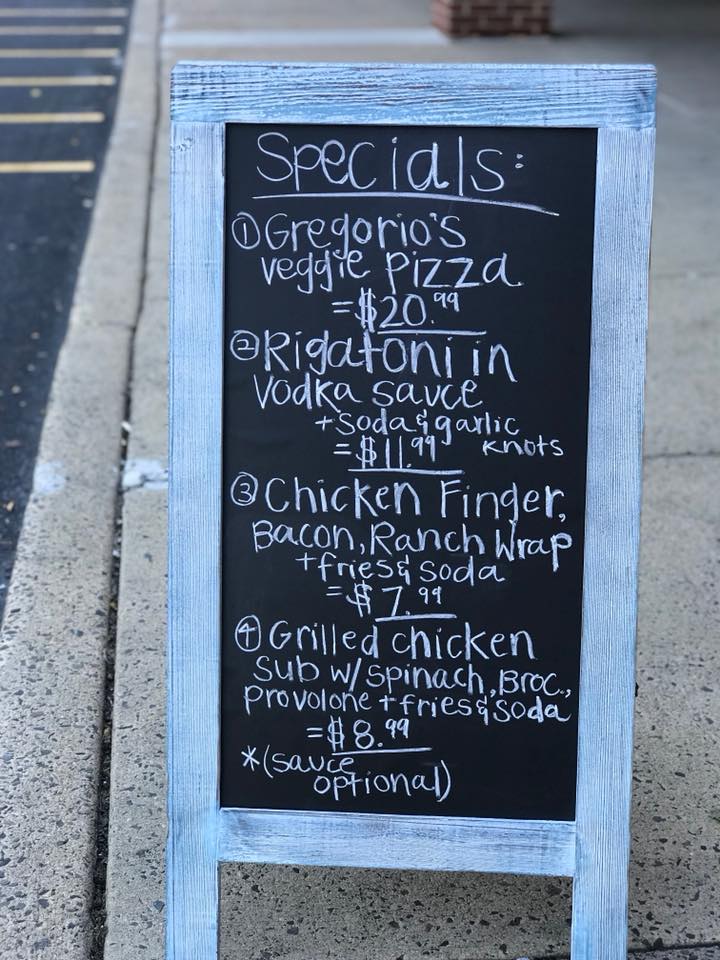 Specials:
① Gregorio's
veggie pizza
= $20.99
② Rigatoni in
vodka sauce
+ soda & garlic
knots
= $11.99
③ Chicken Finger,
Bacon, Ranch Wrap
+ fries & soda
= $7.99
④ Grilled chicken
sub w/ spinach, Broc.,
provolone + fries & soda
= $8.99
*(sauce
optional)